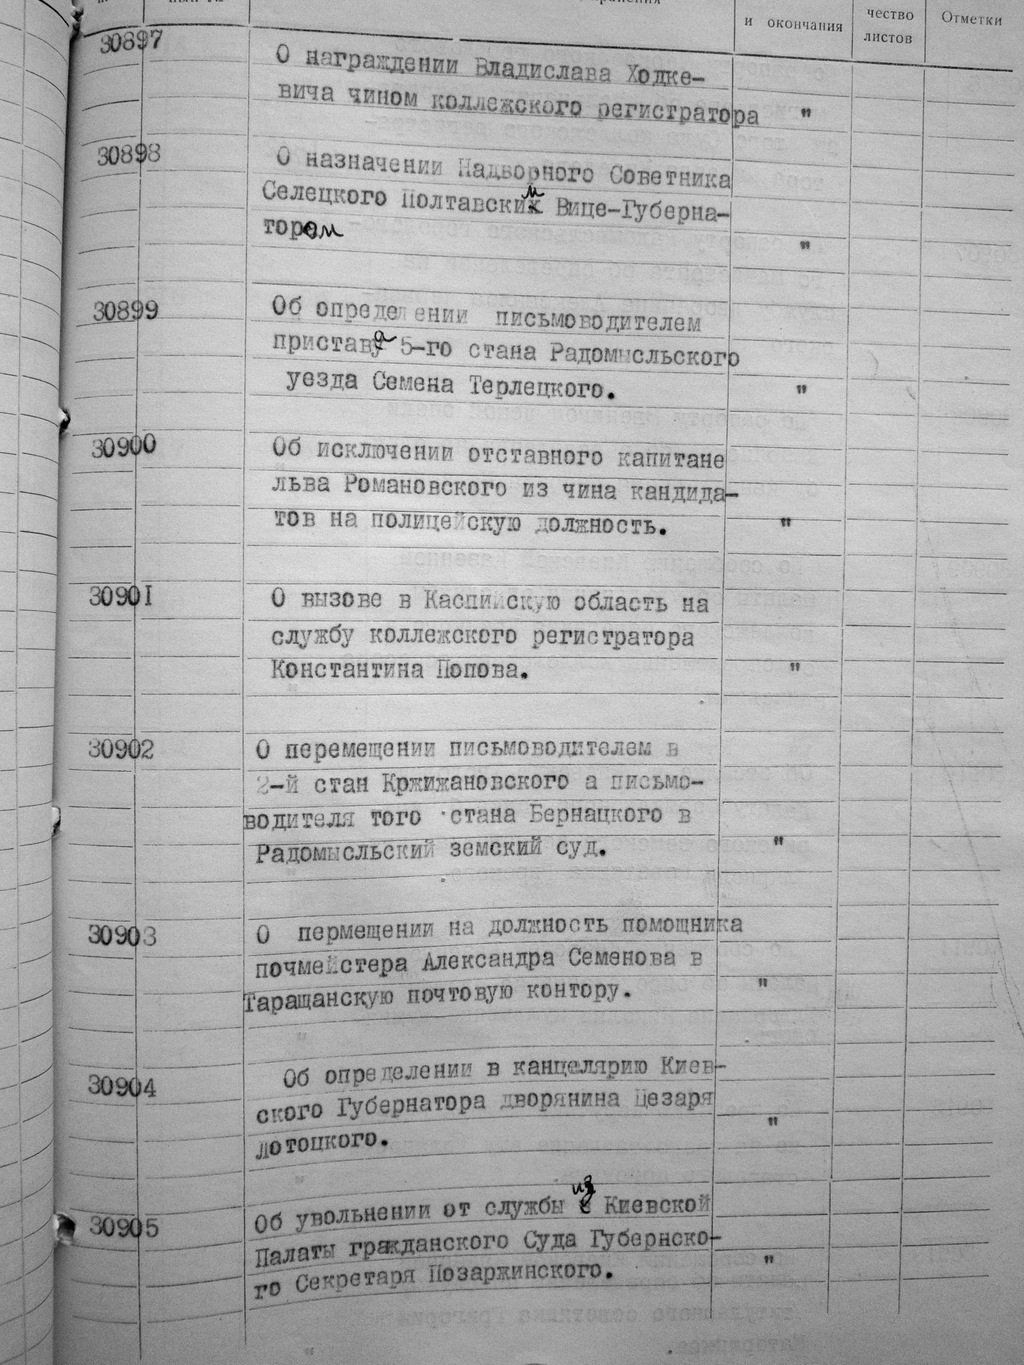 и окончания
чество
листов
Отметки
30897
О награждении Владислава Ходке-
вича чином коллежского регистратора "
30898
О назначении Надворного Советника
Селецкого Полтавским Вице-Губерна-
тором "
30899
Об определении письмоводителем
пристава 5-го стана Радомысльского
уезда Семена Терлецкого. "
30900
Об исключении отставного капитане
льва Романовского из чина кандида-
тов на полицейскую должность. "
30901
О вызове в Каспийскую область на
службу коллежского регистратора
Константина Попова. "
30902
О перемещении письмоводителем в
2-й стан Кржижановского а письмо-
водителя того стана Бернацкого в
Радомысльский земский суд. "
30903
О пермещении на должность помощника
почмейстера Александра Семенова в
Таращанскую почтовую контору. "
30904
Об определении в канцелярию Киев-
ского Губернатора дворянина Цезаря
лотоцкого. "
30905
Об увольнении от службы из Киевской
Палаты гражданского Суда Губернско-
го Секретаря Позаржинского. "